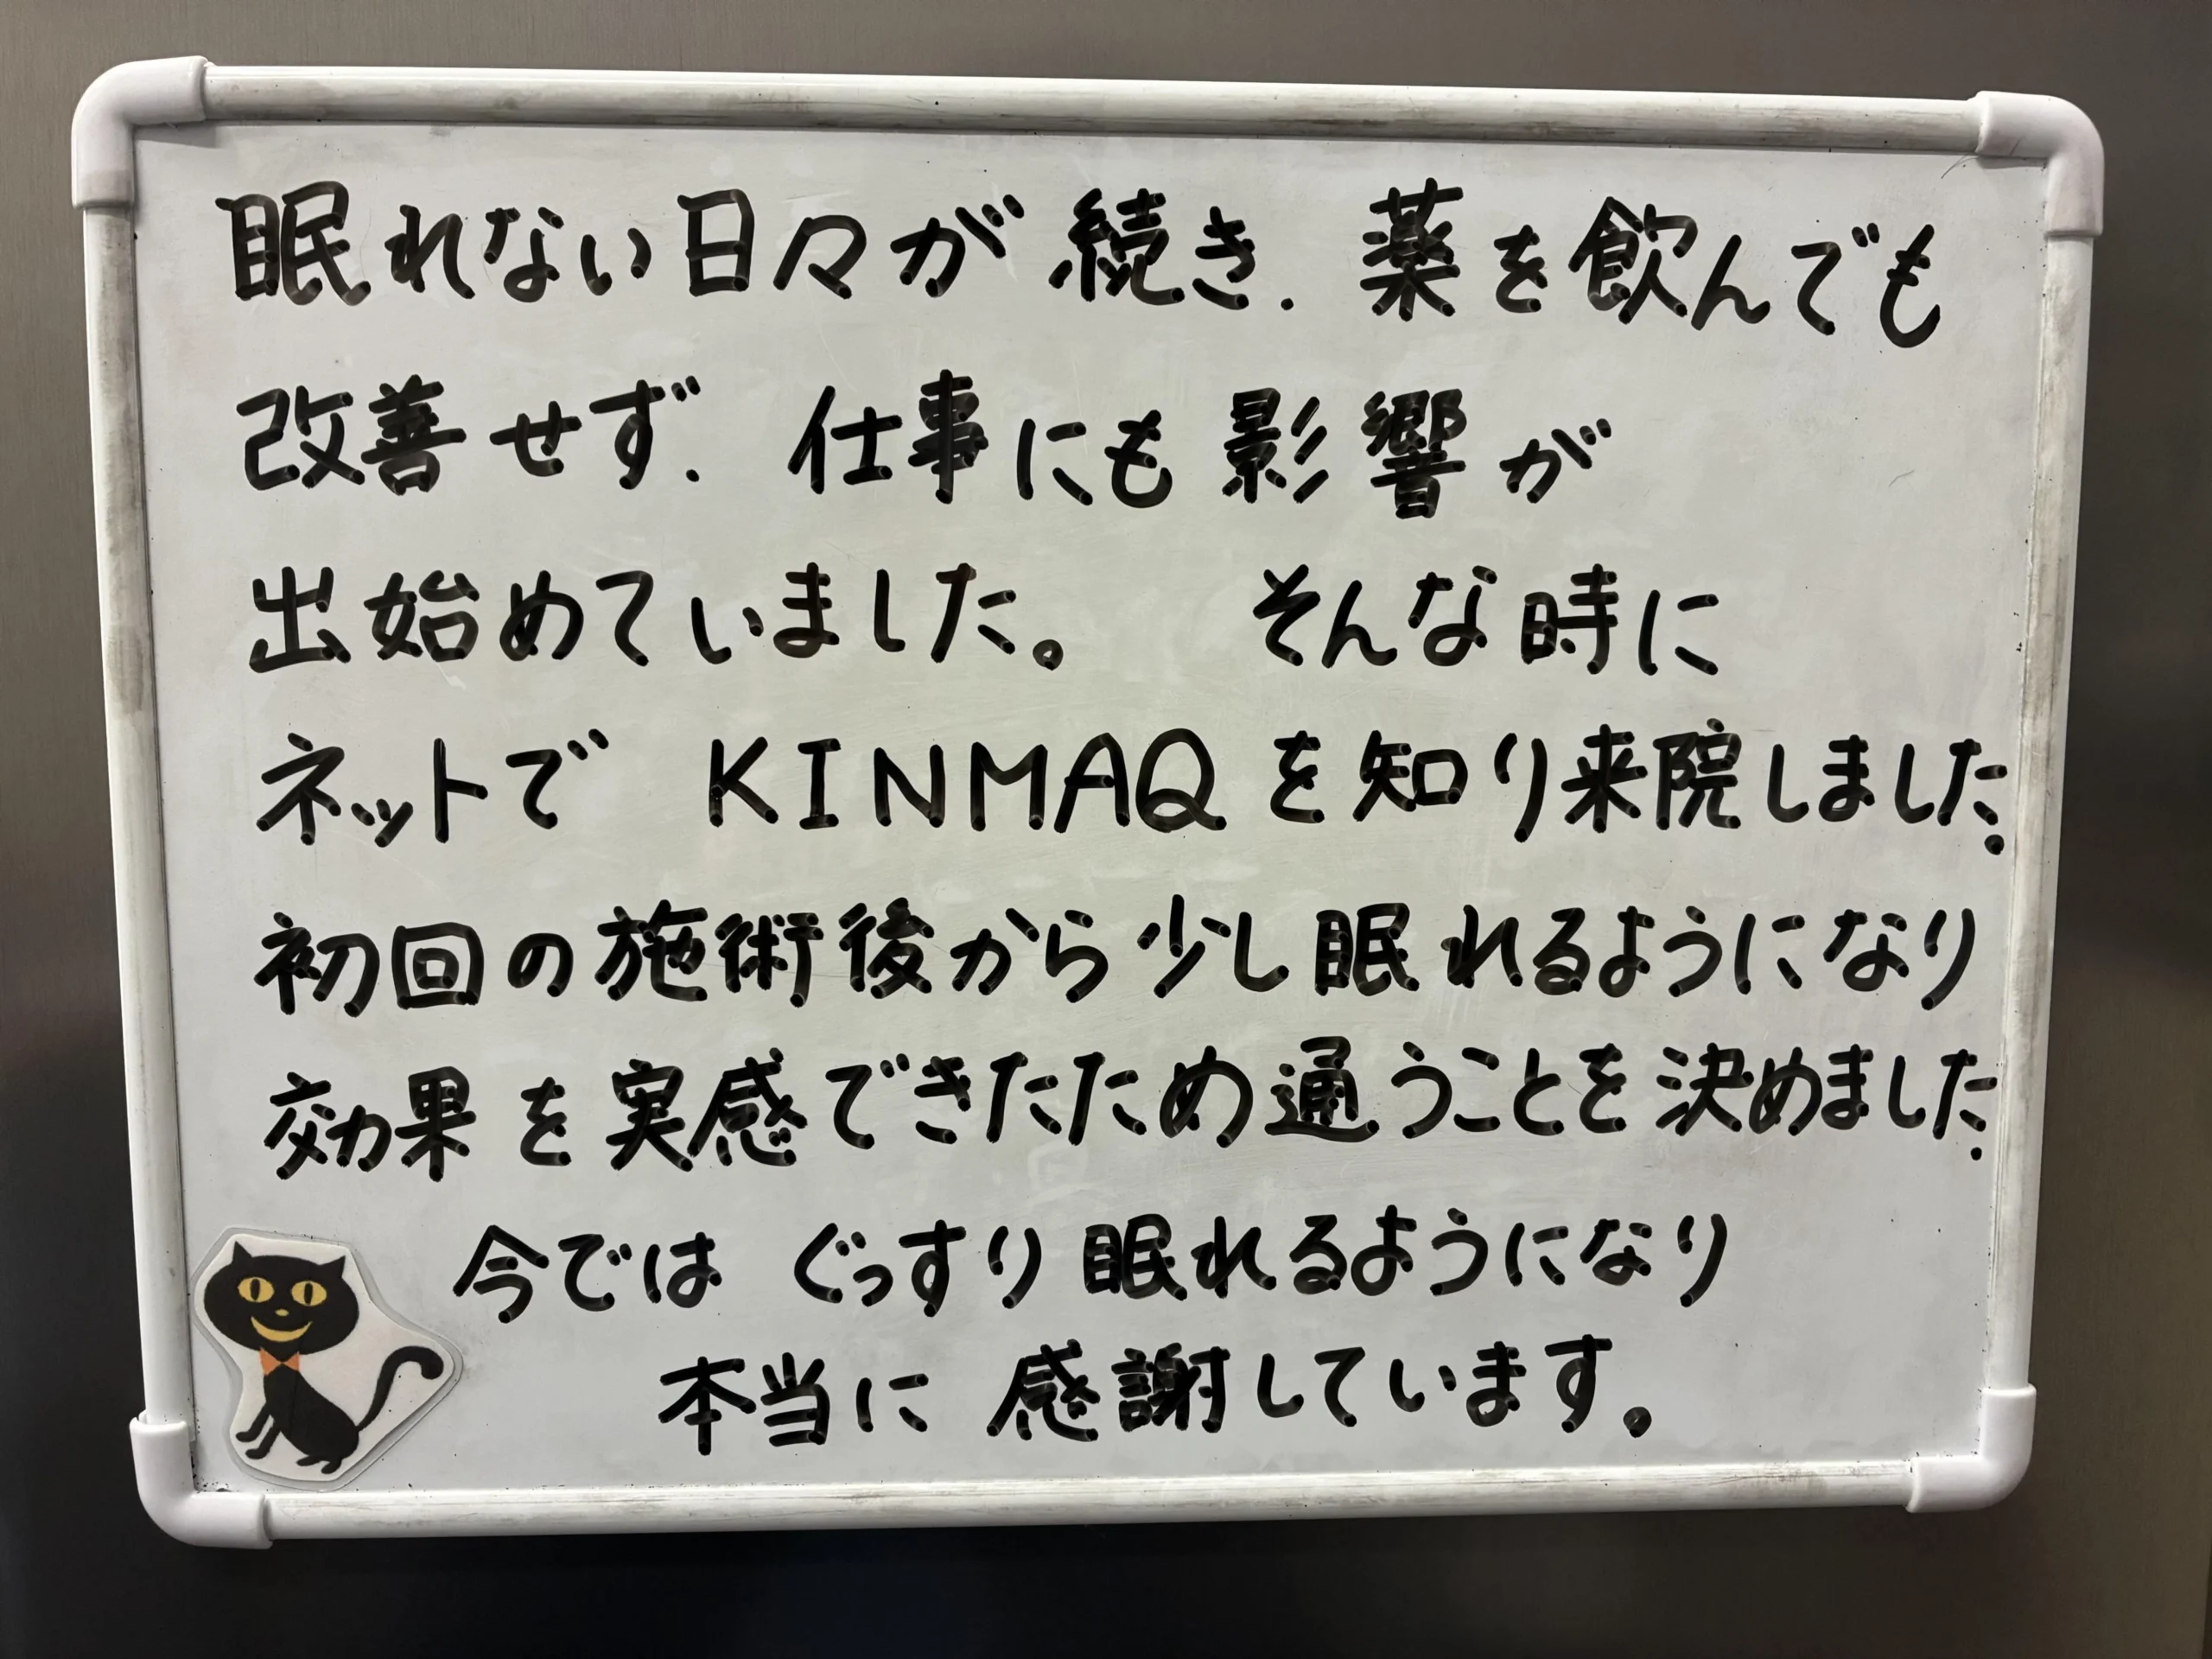 眠れない日々が続き、薬を飲んでも
改善せず、仕事にも影響が
出始めていました。 そんな時に
ネットで KINMAQ を知り来院しました。
初回の施術後から少し眠れるようになり
効果を実感できたため通うことを決めました。
今では ぐっすり眠れるようになり
本当に感謝しています。